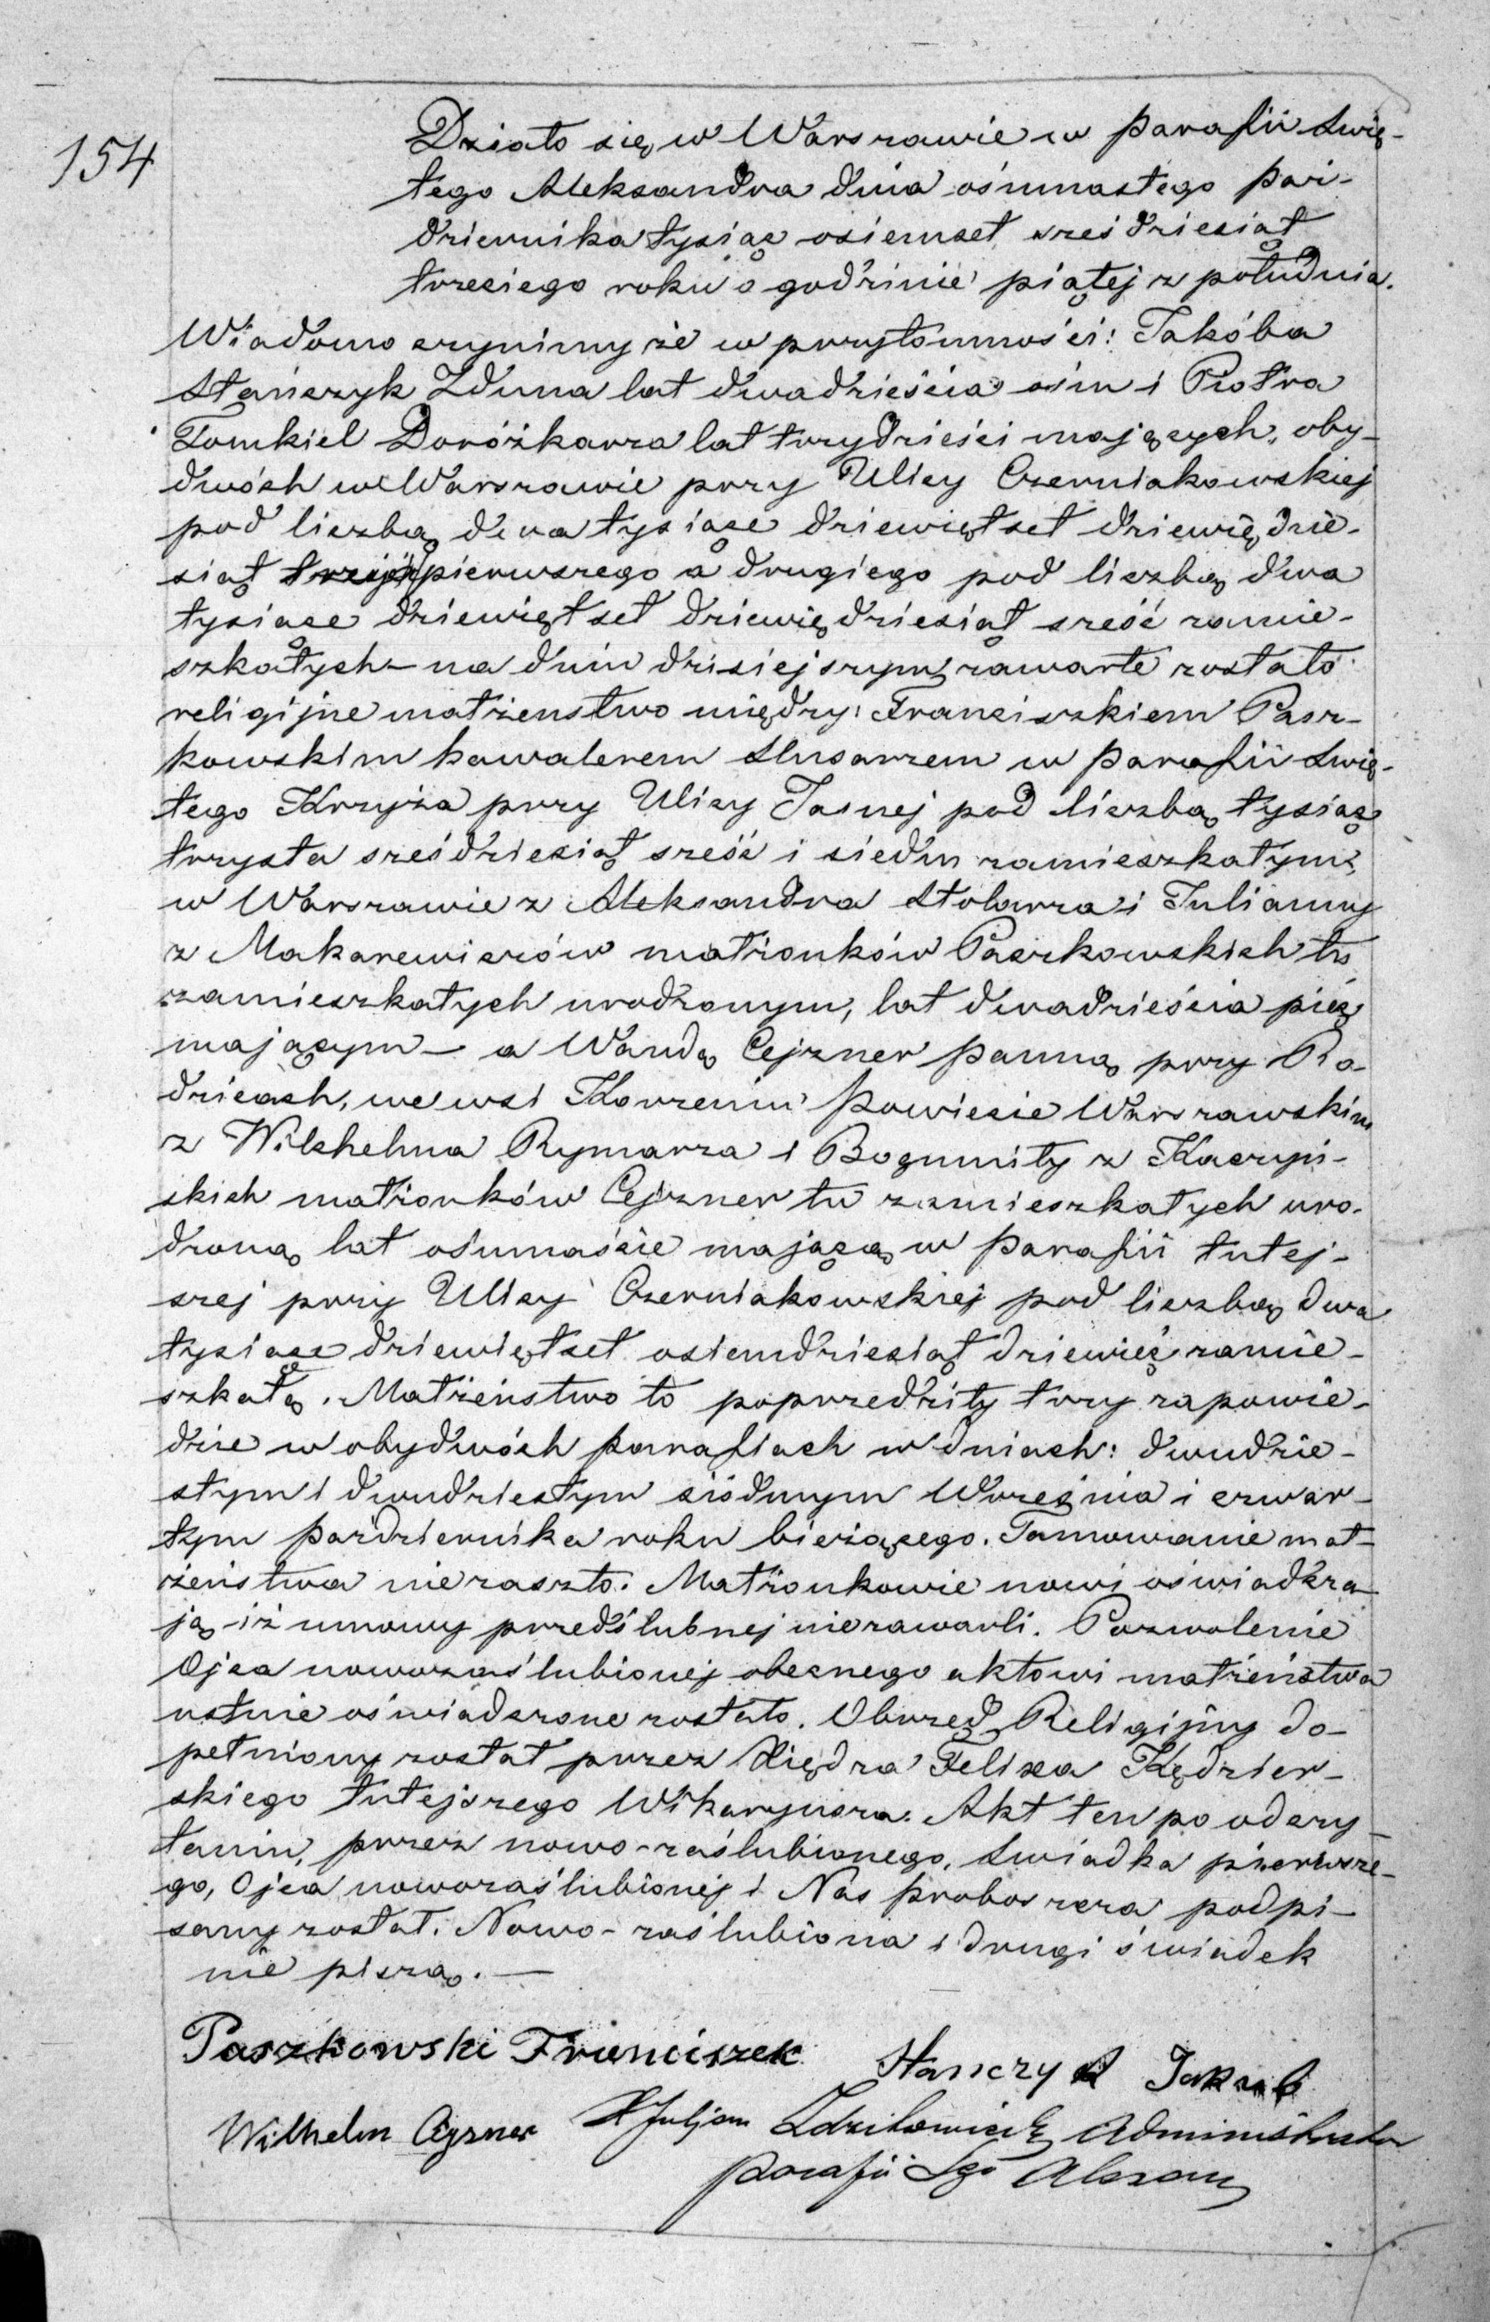 154
Działo się w Warszawie w Parafii Swię-
tego Aleksandra dnia ośmnastego Paź-
dziernika tysiąc osiemset sześdziesiąt
trzeciego roku o godzinie piątej z południa.
Wiadomo czynimy że w przytomności: Jakóba
Stańczyk Zduna lat dwadzieścia ośm i Piotra
Tomkiel Doróżkarza lat trzydzieści mających, oby-
dwóch w Warszawie przy Ulicy Czerniakowskiej
pod liczbą dwa tysiące dziewiętset dziewiędzie-
siąt pierwszego a drugiego pod liczbą dwa
tysiące dziewiętset dziewiędziesiąt sześć zamie-
szkałych – na dniu dzisiejszym zawarte zostało
religijne małżenstwo między: Franciszkiem Pasz-
kowskim kawalerem Slusarzem w Parafii Swię-
tego Krzyża przy Ulicy Jasnej pod liczbą tysiąc
trzysta sześdziesiąt sześć i siedm zamieszkałym,
w Warszawie z Aleksandra Stolarza i Julianny
z Makarewiczów małżonków Paszkowskich tu
zamieszkałych urodzonym, lat dwadzieścia pięć
mającym – a Wandą Cejzner Panną przy Ro-
dzicach, we wsi Korzeniu Powiecie Warszawskim
z Wilhelma Rymarza i Bogumiły z Kaczyń-
skich małżonków Cejzner tu zamieszkałych uro-
dzoną, lat ośmnaście mającą w Parafii tutej-
szej przy Ulicy Czerniakowskiej pod liczbą dwa
tysiące dziewiętset osiemdziesiąt dziewięć zamie-
szkałą. Małżeństwo to poprzedziły trzy zapowie-
dzie w obydwóch parafiach w dniach: dwudzie-
stym i dwudziestym siódmym Września i czwar-
tym Października roku bieżącego. Tamowanie mał-
żeństwa nie zaszło. Małżonkowie nowi oświadcza
ją iż umowy przedślubnej nie zawarli. Pozwolenie
Ojca nowozaślubionej obecnego aktowi małżeństwa
ustnie oświadczone zostało. Obrzęd Religijny do-
pełniony został przez Xiędza Felixa Kędzier-
skiego tutejszego Wikaryusza. Akt ten po odczy-
taniu, przez nowo-zaślubionego, Swiadka pierwsze-
go, Ojca nowozaślubionej i Nas proboszcza podpi-
sany został. Nowo-zaślubiona i drugi świadek
nie piszą. —
Paszkowski Franciszek Stanczyk Jakub
Wilhelm Cejzner X Juljan Administrator
parafii Sgo